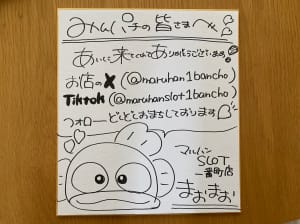 みんパチの皆さまへ
あいにしに来てくれてありがとうございます!
お店のX (@maruhan1bancho)
Tiktok (@maruhanslot1bancho)
フォローどしどしおまちしております
マルハン
SLOT
一番町店
まおまお